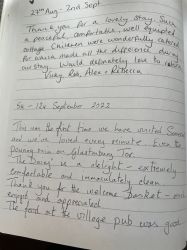 27th Aug - 2nd Sept.
Thank you for a lovely stay. Such
a peaceful, comfortable, well equipped
cottage. Children were wonderfully catered
for which made all the difference during
our stay. Would definitely love to return
Vicky, Rob, Alex + Rebecca
5th - 12th September 2022
This was the first time we have visited Somerset
and we've loved every minute. Even the
pouring rain on Glastonbury Tor.
The Dairy is a delight - extremely
comfortable and immaculately clean.
Thank you for the welcome basket -
enjoyed and appreciated.
The food at the village pub was good